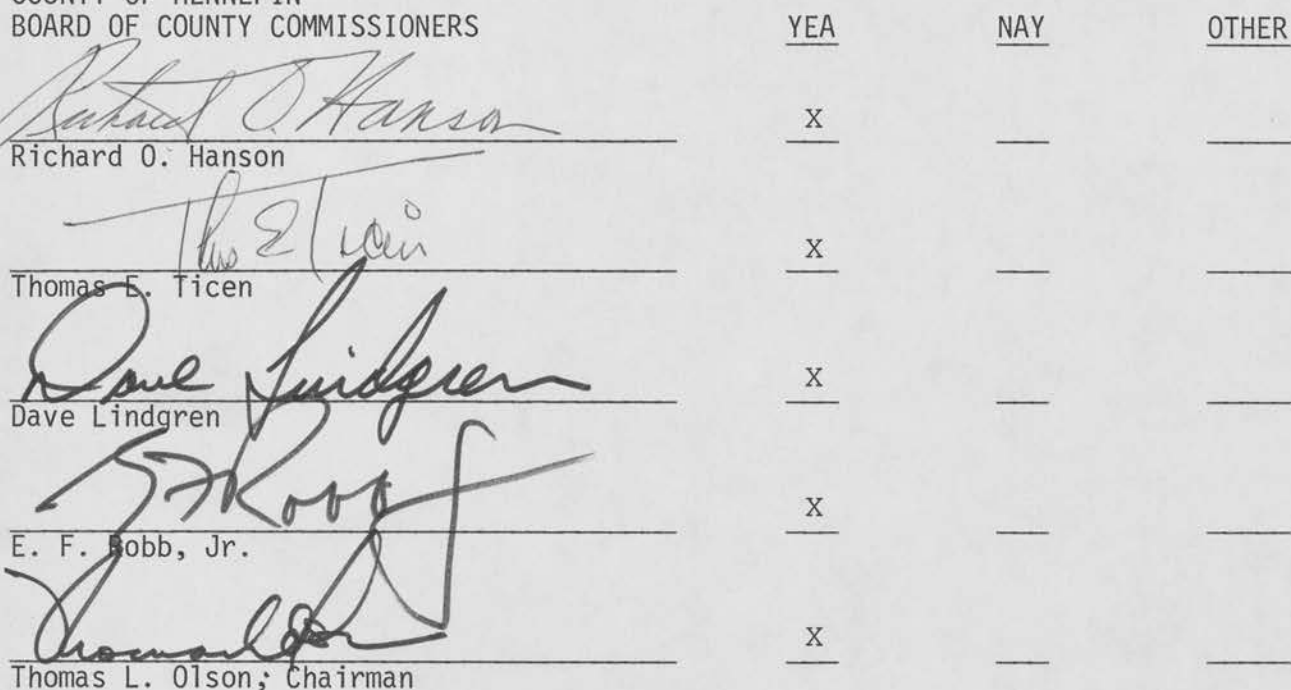 COUNTY OF HENNEPIN
BOARD OF COUNTY COMMISSIONERS YEA NAY OTHER
Richard O. Hanson X
Richard O. Hanson
Thos E Ticen X
Thomas E. Ticen
Dave Lindgren X
Dave Lindgren
E F Robb Jr X
E. F. Robb, Jr.
Thomas L Olson X
Thomas L. Olson, Chairman